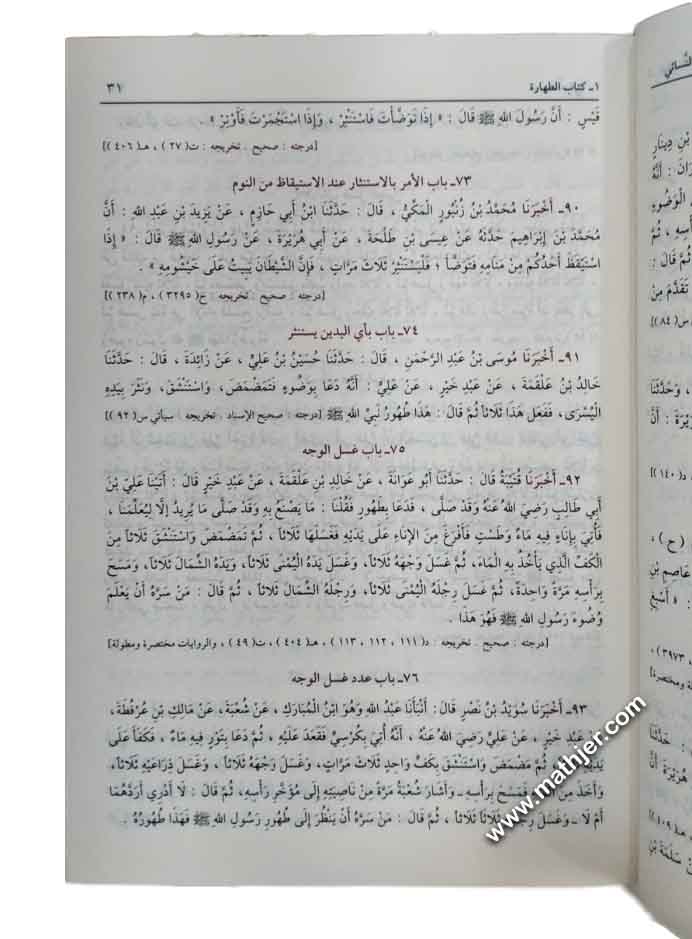 ١ـ كتاب الطهارة
٣١
قَيْسٍ : أَنَّ رَسُولَ اللهِ ﷺ قَالَ : « إِذَا تَوَضَّأْتَ فَاسْتَنْثِرْ ، وَإِذَا اسْتَجْمَرْتَ فَأَوْتِرْ » .
[درجته : صحيح . تخريجه : ت( ٢٧ ) ، هـ( ٤٠٦ )]
٧٣ـ باب الأمر بالاستنثار عند الاستيقاظ من النوم
٩٠ـ أَخْبَرَنَا مُحَمَّدُ بْنُ زُنْبُورٍ الْمَكِّيُّ ، قَالَ : حَدَّثَنَا ابْنُ أَبِي حَازِمٍ ، عَنْ يَزِيدَ بْنِ عَبْدِ اللهِ : أَنَّ
مُحَمَّدَ بْنَ إِبْرَاهِيمَ حَدَّثَهُ عَنْ عِيسَى بْنِ طَلْحَةَ ، عَنْ أَبِي هُرَيْرَةَ ، عَنْ رَسُولِ اللهِ ﷺ قَالَ : « إِذَا
اسْتَيْقَظَ أَحَدُكُمْ مِنْ مَنَامِهِ فَتَوَضَّأَ ؛ فَلْيَسْتَنْثِرْ ثَلَاثَ مَرَّاتٍ ، فَإِنَّ الشَّيْطَانَ يَبِيتُ عَلَى خَيْشُومِهِ » .
[درجته : صحيح . تخريجه : خ( ٣٢٩٥ ) ، م( ٢٣٨ )]
٧٤ـ باب بأي اليدين يستنثر
٩١ـ أَخْبَرَنَا مُوسَى بْنُ عَبْدِ الرَّحْمَنِ ، قَالَ : حَدَّثَنَا حُسَيْنُ بْنُ عَلِيٍّ ، عَنْ زَائِدَةَ ، قَالَ : حَدَّثَنَا
خَالِدُ بْنُ عَلْقَمَةَ ، عَنْ عَبْدِ خَيْرٍ ، عَنْ عَلِيٍّ : أَنَّهُ دَعَا بِوَضُوءٍ فَتَمَضْمَضَ، وَاسْتَنْشَقَ، وَنَثَرَ بِيَدِهِ
الْيُسْرَى، فَفَعَلَ هَذَا ثَلَاثاً ثُمَّ قَالَ : هَذَا طُهُورُ نَبِيِّ اللهِ ﷺ [درجته : صحيح الإسناد . تخريجه : سيأتي س( ٩٢ )]
٧٥ـ باب غسل الوجه
٩٢ـ أَخْبَرَنَا قُتَيْبَةُ قَالَ : حَدَّثَنَا أَبُو عَوَانَةَ ، عَنْ خَالِدِ بْنِ عَلْقَمَةَ ، عَنْ عَبْدِ خَيْرٍ قَالَ : أَتَيْنَا عَلِيَّ بْنَ
أَبِي طَالِبٍ رَضِيَ اللهُ عَنْهُ وَقَدْ صَلَّى ، فَدَعَا بِطَهُورٍ فَقُلْنَا : مَا يَصْنَعُ بِهِ وَقَدْ صَلَّى مَا يُرِيدُ إِلَّا لِيُعَلِّمَنَا ،
فَأُتِيَ بِإِنَاءٍ فِيهِ مَاءٌ وَطَسْتٍ فَأَفْرَغَ مِنَ الإِنَاءِ عَلَى يَدَيْهِ فَغَسَلَهَا ثَلَاثاً ، ثُمَّ تَمَضْمَضَ وَاسْتَنْشَقَ ثَلَاثاً مِنَ
الْكَفِّ الَّذِي يَأْخُذُ بِهِ الْمَاءَ، ثُمَّ غَسَلَ وَجْهَهُ ثَلَاثاً، وَغَسَلَ يَدَهُ الْيُمْنَى ثَلَاثاً، وَيَدَهُ الشِّمَالَ ثَلَاثاً، وَمَسَحَ
بِرَأْسِهِ مَرَّةً وَاحِدَةً، ثُمَّ غَسَلَ رِجْلَهُ الْيُمْنَى ثَلَاثاً، وَرِجْلَهُ الشِّمَالَ ثَلَاثاً ، ثُمَّ قَالَ : مَنْ سَرَّهُ أَنْ يَعْلَمَ
وُضُوءَ رَسُولِ اللهِ ﷺ فَهُوَ هَذَا .
[درجته : صحيح . تخريجه : د( ١١١ ، ١١٢ ، ١١٣ ) ، هـ( ٤٠٤ ) ، ت( ٤٩ ) ، والروايات مختصرة ومطولة]
٧٦ـ باب عدد غسل الوجه
٩٣ـ أَخْبَرَنَا سُوَيْدُ بْنُ نَصْرٍ قَالَ : أَنْبَأَنَا عَبْدُ اللهِ وَهُوَ ابْنُ الْمُبَارَكِ ، عَنْ شُعْبَةَ، عَنْ مَالِكِ بْنِ عُرْفُطَةَ،
عَبْدِ خَيْرٍ ، عَنْ عَلِيٍّ رَضِيَ اللهُ عَنْهُ ، أَنَّهُ أُتِيَ بِكُرْسِيٍّ فَقَعَدَ عَلَيْهِ ، ثُمَّ دَعَا بِتَوْرٍ فِيهِ مَاءٌ ، فَكَفَأَ عَلَى
يَدَيْهِ ثُمَّ مَضْمَضَ وَاسْتَنْشَقَ بِكَفٍّ وَاحِدٍ ثَلَاثَ مَرَّاتٍ، وَغَسَلَ وَجْهَهُ ثَلَاثاً ، وَغَسَلَ ذِرَاعَيْهِ ثَلَاثاً،
وَأَخَذَ مِنَ فَمَسَحَ بِرَأْسِهِ ـ وَأَشَارَ شُعْبَةُ مَرَّةً مِنْ نَاصِيَتِهِ إِلَى مُؤَخَّرِ رَأْسِهِ، ثُمَّ قَالَ : لَا أَدْرِي أَرَدَّهُمَا
أَمْ لَا ـ وَغَسَلَ رِجْلَيْهِ ثَلَاثاً ثَلَاثاً ، ثُمَّ قَالَ : مَنْ سَرَّهُ أَنْ يَنْظُرَ إِلَى طُهُورِ رَسُولِ اللهِ ﷺ فَهَذَا طُهُورُهُ .
www.mathjer.com